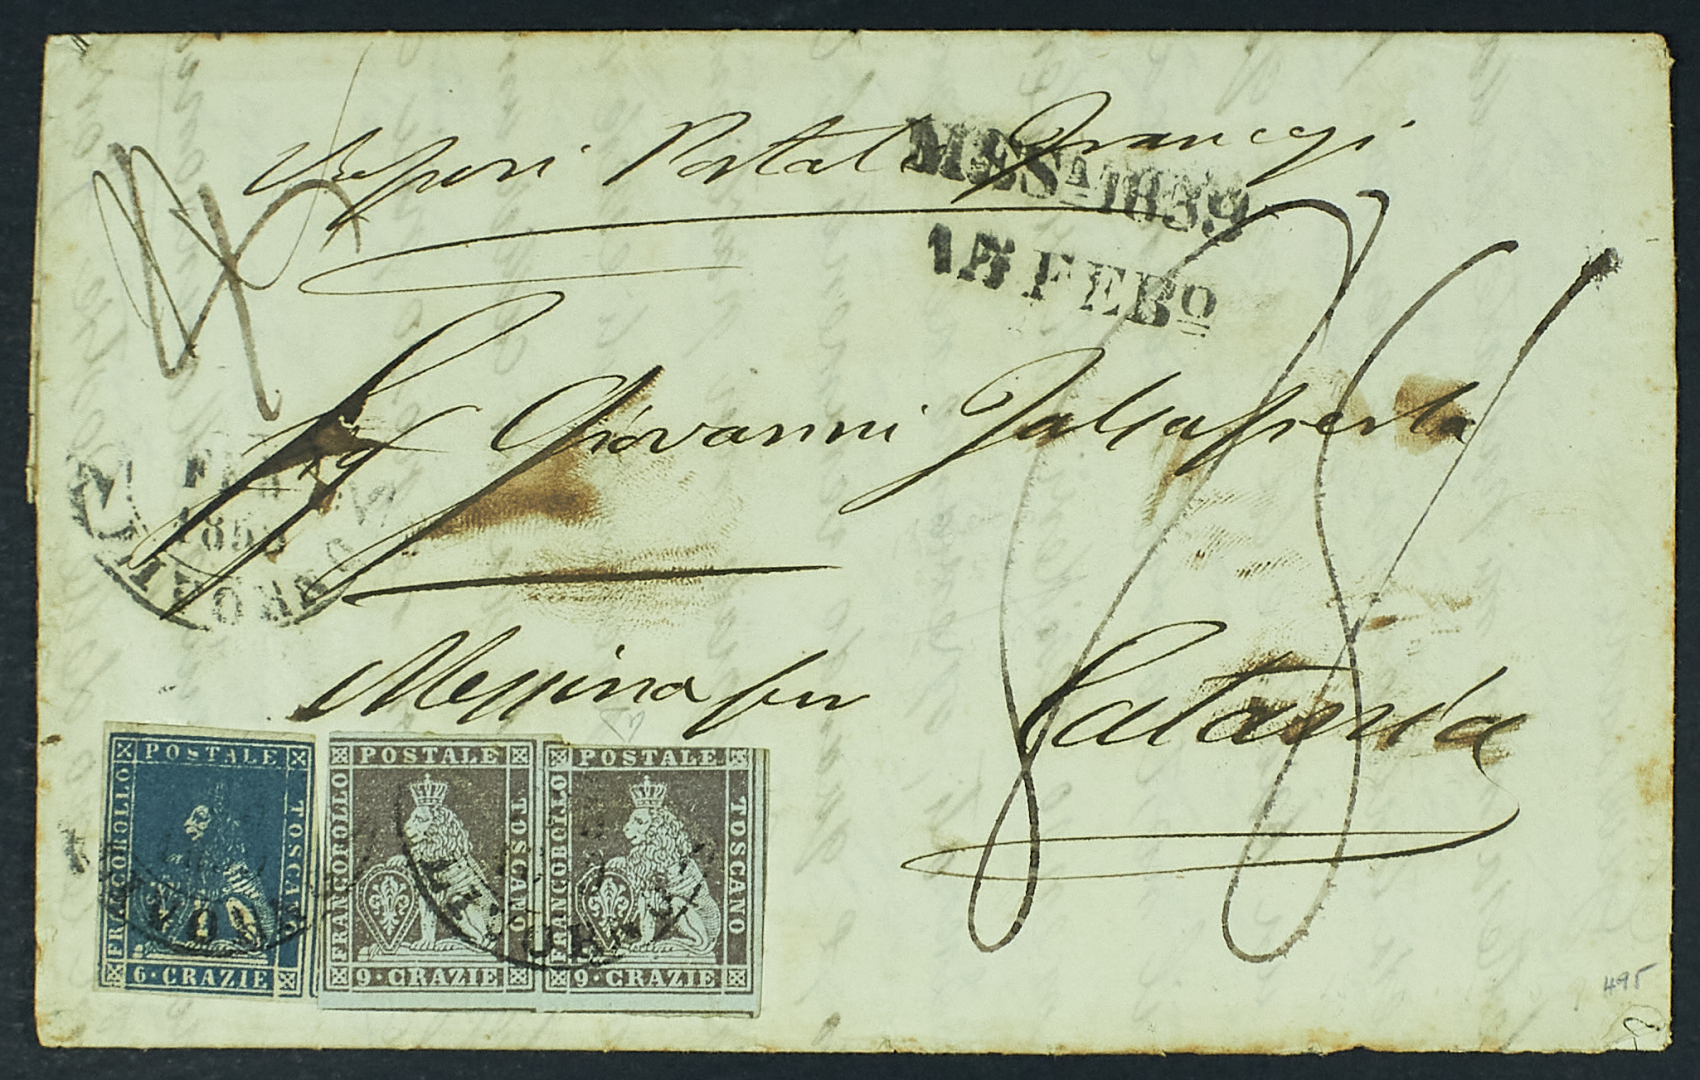 Vapori Postali Francesi
MESA. 1839
15 FEBo
Sig Giovanni
FEB
185
LIVORNO
Messina per Catania
POSTALE
FRANCOBOLLO
TOSCANO
6·CRAZIE
POSTALE
FRANCOBOLLO
TOSCANO
9·CRAZIE
POSTALE
FRANCOBOLLO
TOSCANO
9·CRAZIE
LIVORNO
495